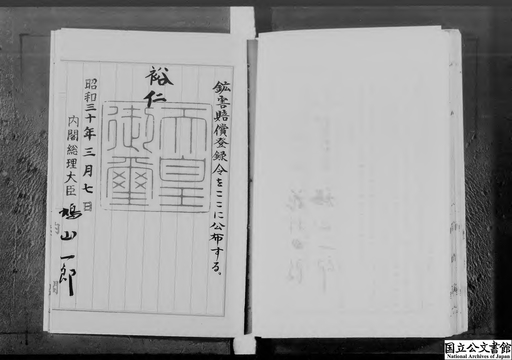 鉱害賠償登録令をここに公布する。
裕仁
天皇御璽
昭和三十年三月七日
内閣総理大臣 鳩山一郎
国立公文書館
National Archives of Japan